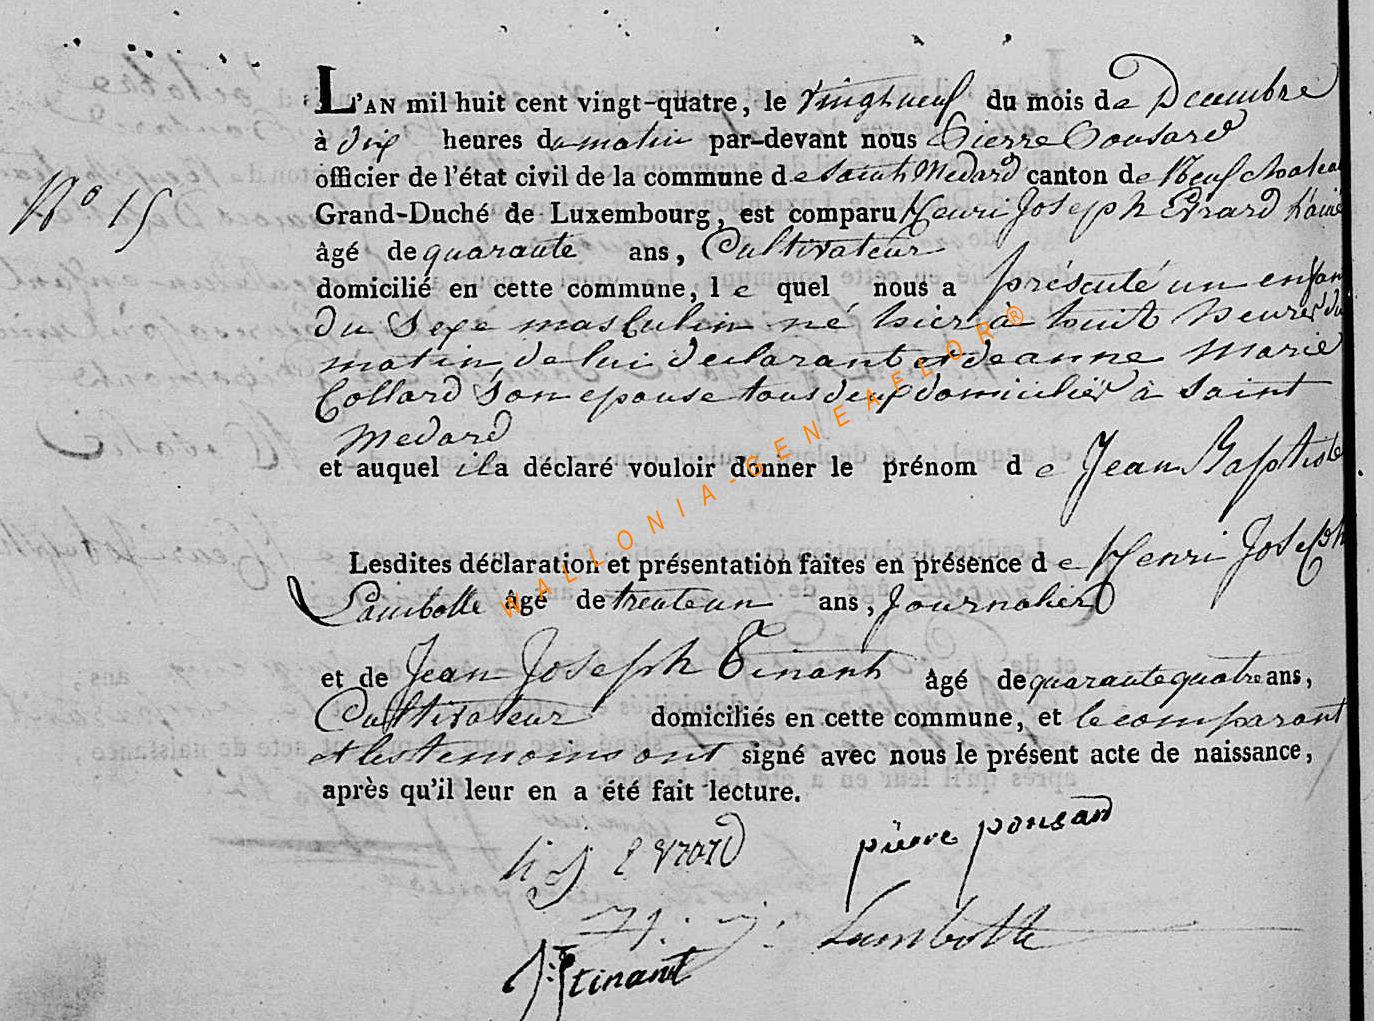 L'AN mil huit cent vingt-quatre, le vingt neuf du mois de Decembre
à dix heures du matin par-devant nous Pierre Ponsard
officier de l'état civil de la commune de Saint Medard canton de Neufchateau
N° 15
Grand-Duché de Luxembourg, est comparu Henri Joseph Evrard l'ainé
âgé de quarante ans, Cultivateur
domicilié en cette commune, le quel nous a présenté un enfant
du Sexe masculin né hier à huit heures du
matin, de lui declarant et de anne Marie
Collard son epouse tous deux domiciliés à Saint
Medard
et auquel il a déclaré vouloir donner le prénom de Jean Baptiste
Lesdites déclaration et présentation faites en présence de Henri Joseph
Lambotte âgé de trente un ans, Journalier
et de Jean Joseph Tinant âgé de quarante quatre ans,
Cultivateur domiciliés en cette commune, et le comparant
et les temoins ont signé avec nous le présent acte de naissance,
après qu'il leur en a été fait lecture.
h j Evrard pierre ponsard
h. j. Lambotte
J: J tinant
WALLONIA-GENEAELOR®